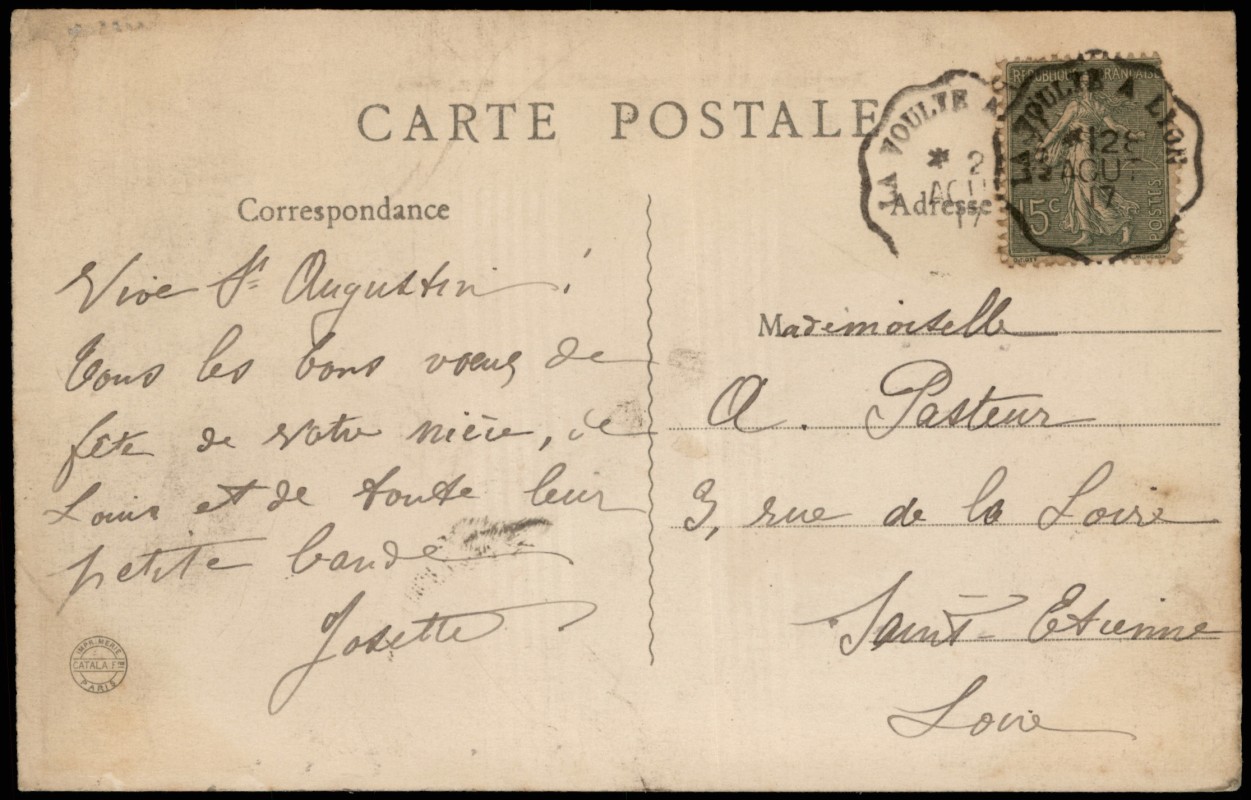 CARTE POSTALE
Correspondance
Vive St Augustin !
Tous les bons voeux de
fête de votre nièce, de
Louis et de toute leur
petite bande
Josette
IMPRIMERIE
CATALA Fres
PARIS
LA VOULTE A
* 2
AOU
17
LA VOULTE A LYON
* 28
AOUT
17
RÉPUBLIQUE FRANÇAISE
15c
POSTES
Adresse
Mademoiselle
A. Pasteur
3, rue de la Loire
Saint-Etienne
Loire